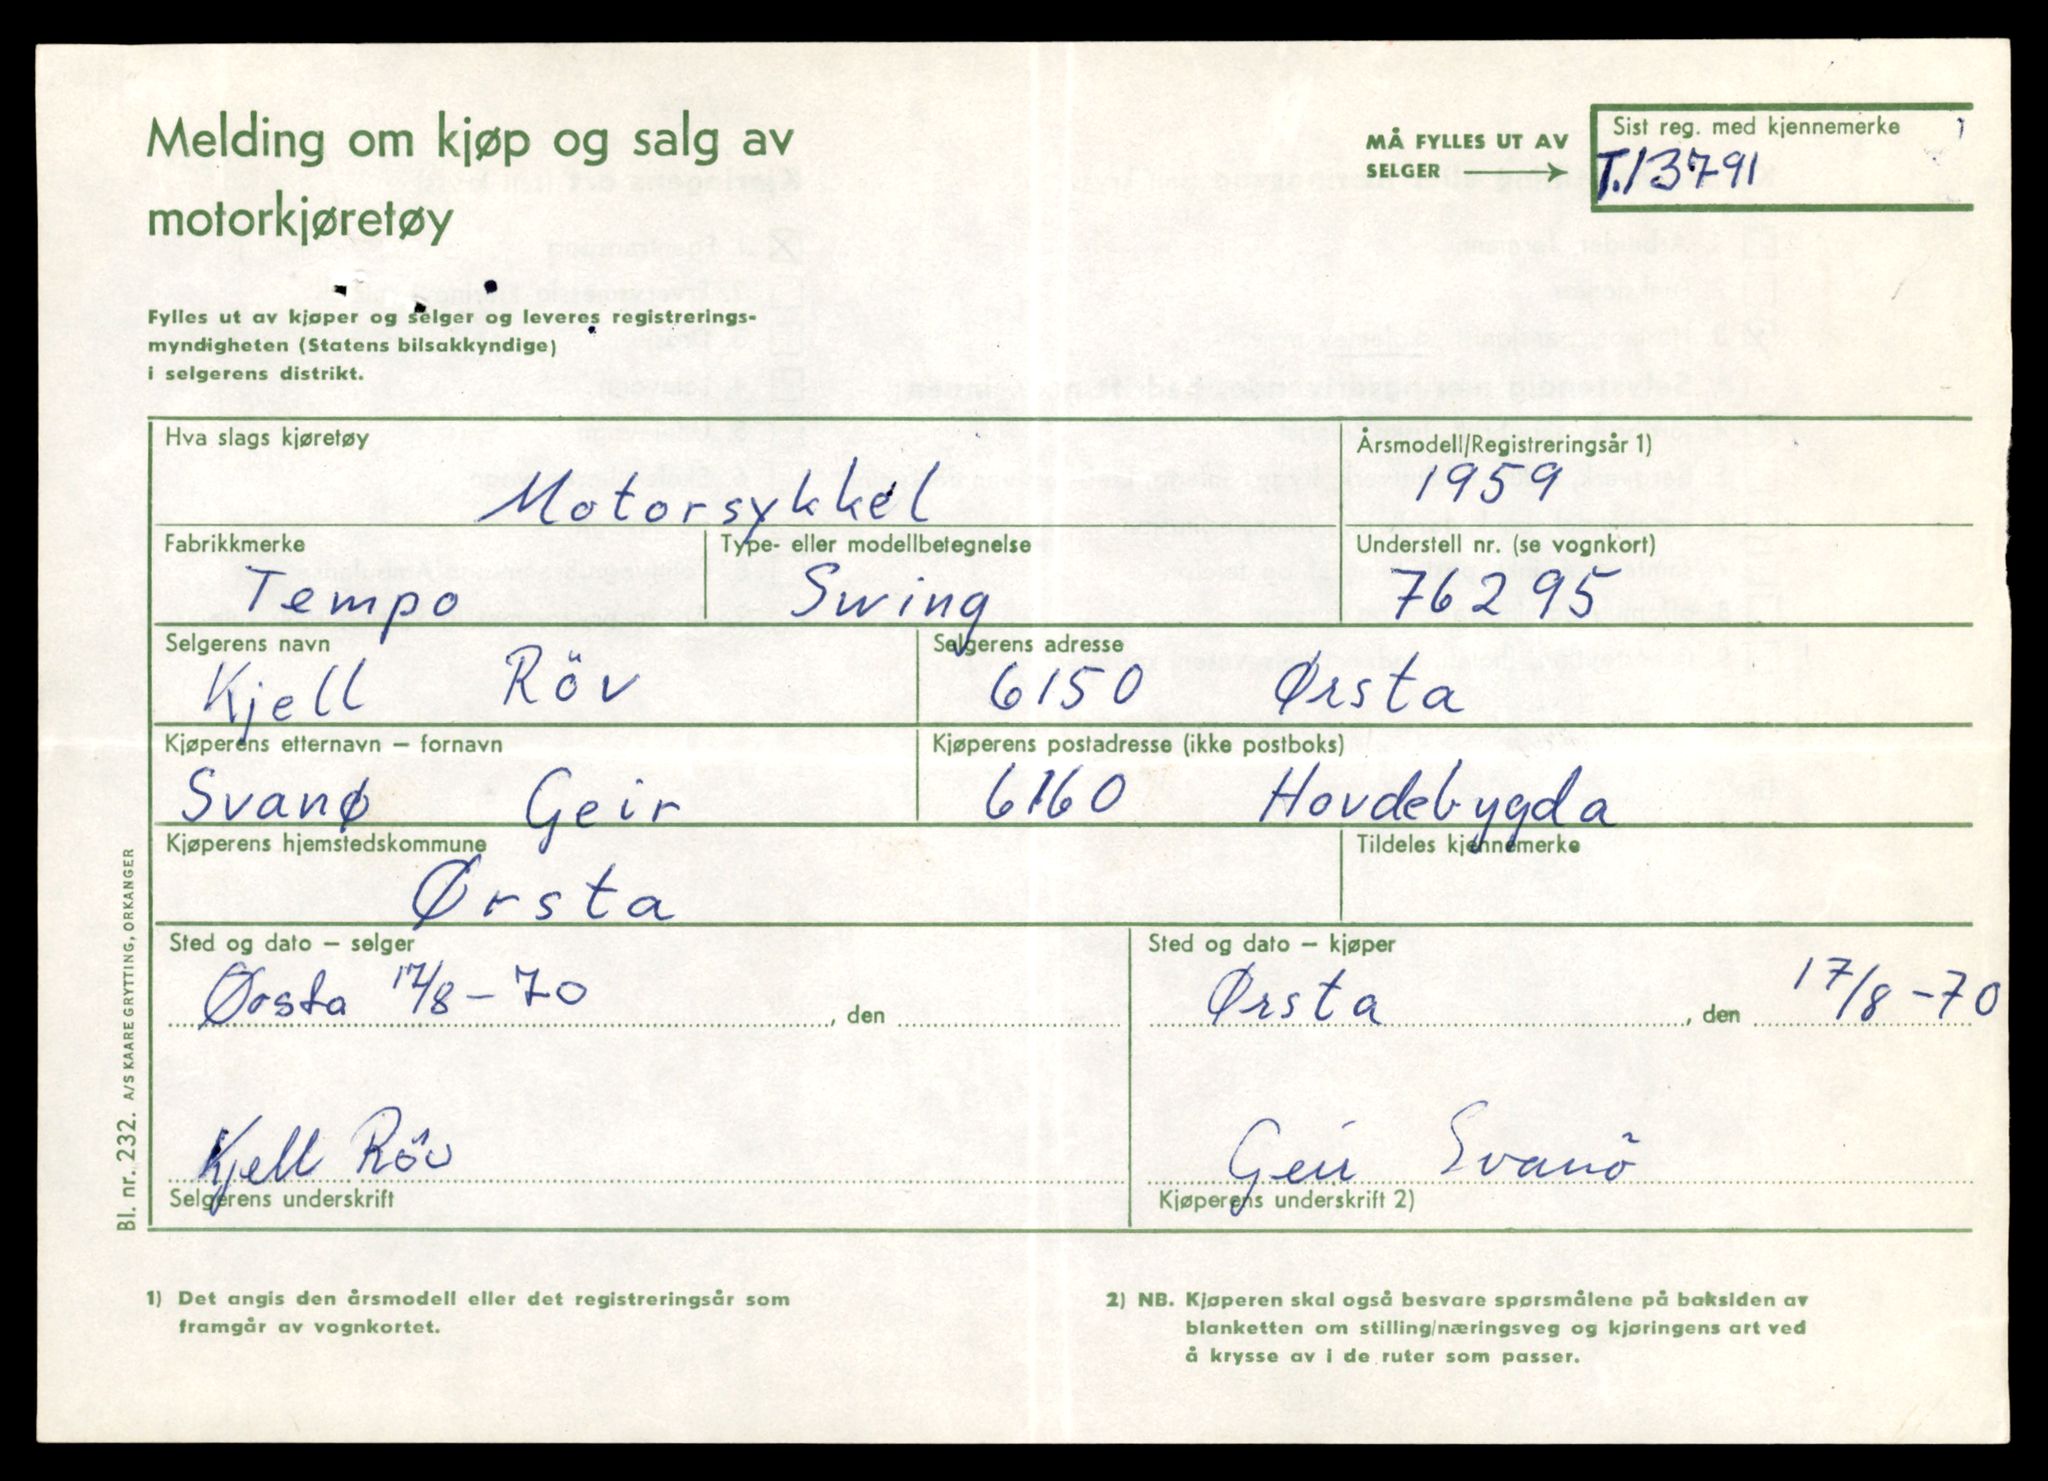 Melding om kjøp og salg av
motorkjøretøy
MÅ FYLLES UT AV
SELGER
Sist reg. med kjennemerke
T.13791
Fylles ut av kjøper og selger og leveres registrerings-
myndigheten (Statens bilsakkyndige)
i selgerens distrikt.
Hva slags kjøretøy
Motorsykkel
Årsmodell/Registreringsår 1)
1959
Fabrikkmerke
Tempo
Type- eller modellbetegnelse
Swing
Understell nr. (se vognkort)
76295
Selgerens navn
Kjell Röv
Selgerens adresse
6150 Ørsta
Kjøperens etternavn – fornavn
Svanø Geir
Kjøperens postadresse (ikke postboks)
6160 Hovdebygda
Kjøperens hjemstedskommune
Ørsta
Tildeles kjennemerke
Sted og dato – selger
Ørsta 17/8-70, den
Sted og dato – kjøper
Ørsta, den 17/8-70
Kjell Röv
Selgerens underskrift
Geir Svanö
Kjøperens underskrift 2)
Bl. nr. 232. A/S KAARE GRYTTING, ORKANGER
1) Det angis den årsmodell eller det registreringsår som
framgår av vognkortet.
2) NB. Kjøperen skal også besvare spørsmålene på baksiden av
blanketten om stilling/næringsveg og kjøringens art ved
å krysse av i de ruter som passer.